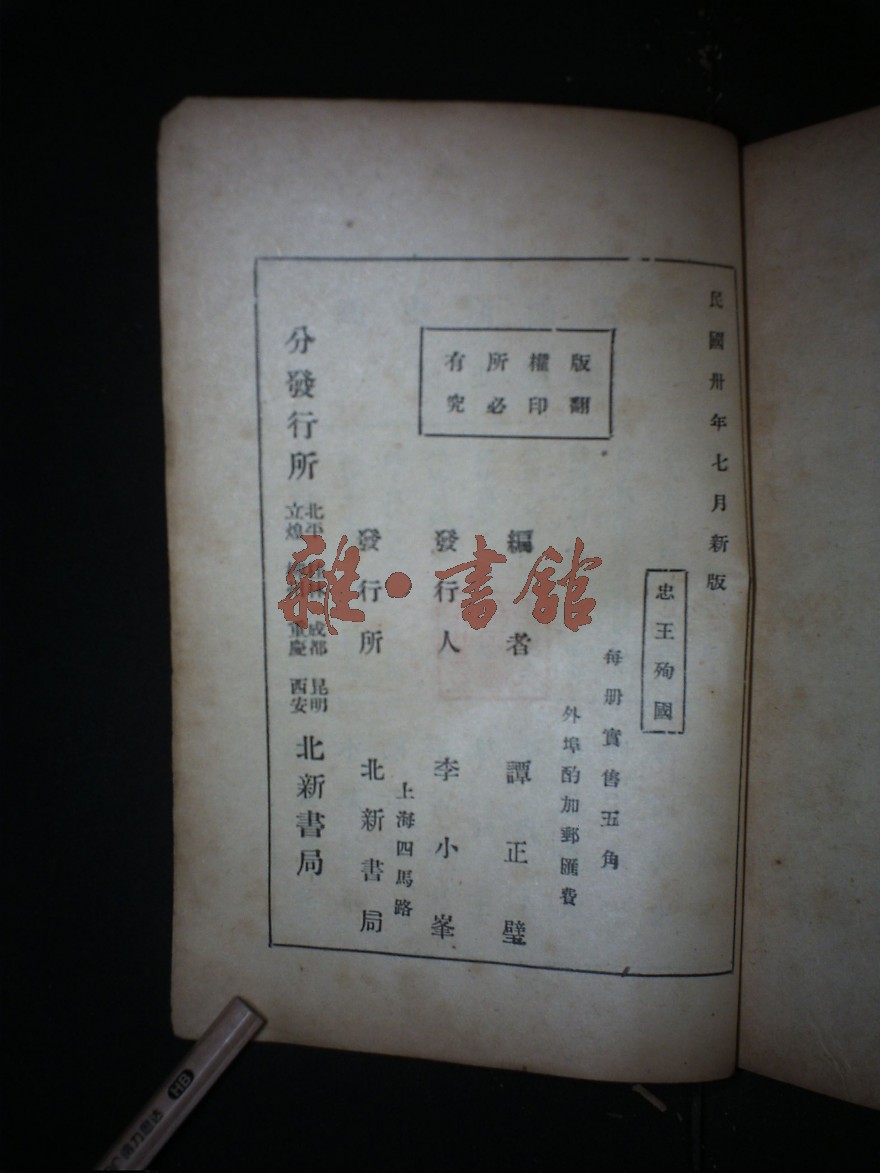 民國卅年七月新版
忠王殉國
每册實售五角
外埠酌加郵匯費
版權所有
翻印必究
編者 譚正璧
發行人 李小峯
上海四馬路
發行所 北新書局
分發行所
北平
成都 昆明
立煌
重慶 西安
北新書局
雜·書舘
HB